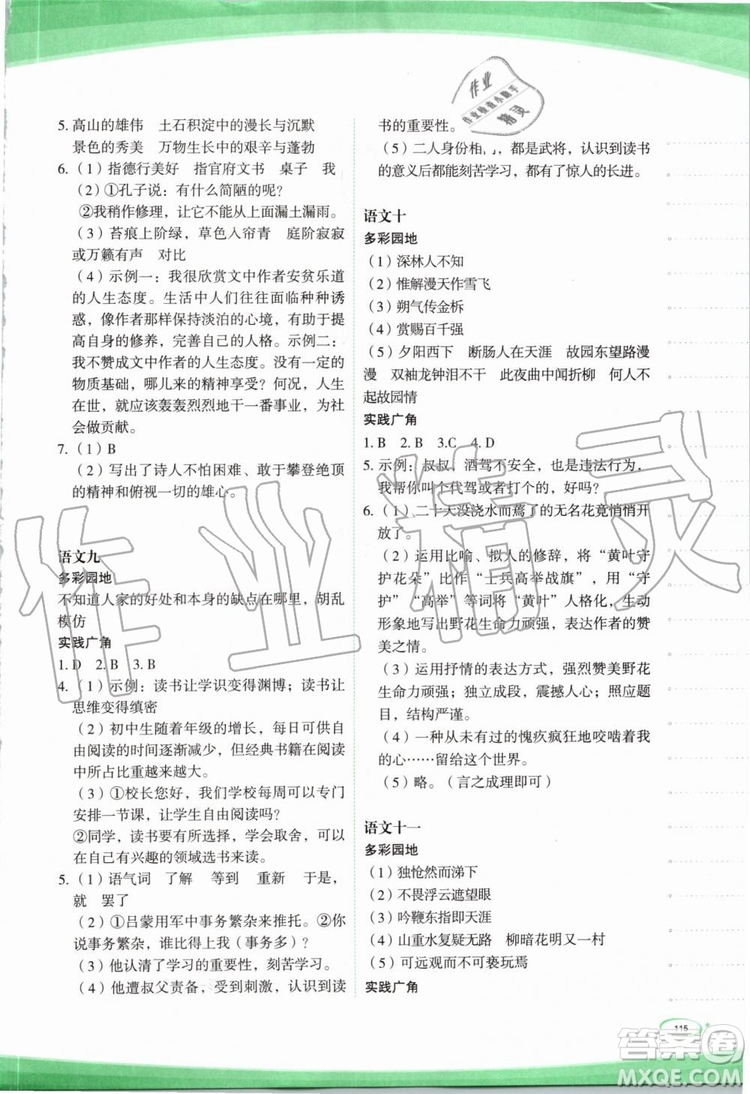 5. 高山的雄伟 土石积淀中的漫长与沉默
景色的秀美 万物生长中的艰辛与蓬勃
6.（1）指德行美好 指官府文书 桌子 我
（2）①孔子说：有什么简陋的呢？
②我稍作修理，让它不从上面漏土漏雨。
（3）苔痕上阶绿，草色入帘青 庭阶寂寂
或万籁有声 对比
（4）示例一：我很欣赏文中作者安贫乐道
的人生态度。生活中人们往往面临种种诱
惑，像作者那样保持淡泊的心境，有利于提
高自身的修养，完善自己的人格。示例二：
我不赞成文中作者的人生态度。没有一定的
物质基础，哪儿来的精神享受？何况，人生
在世，就应该轰轰烈烈地干一番事业，为社
会做贡献。
7.（1）B
（2）写出了诗人不怕困难、敢于攀登绝顶
的精神和俯视一切的雄心。
语文九
多彩园地
不知道人家的好处和本身的缺点在哪里，胡乱
模仿
实践广角
1. D 2. B 3. B
4.（1）示例：读书让学识变得渊博；读书让
思维变得缜密
（2）初中生随着年级的增长，每日可供自
由阅读的时间逐渐减少，但经典书籍在阅读
中所占比重越来越大。
（3）①校长您好，我们学校每周可以专门
安排一节课，让学生自由阅读吗？
②同学，读书要有所选择，学会取舍，可以
在自己有兴趣的领域选书来读。
5.（1）语气词 了解 等到 重新 于是，
就 罢了
（2）①吕蒙用军中事务繁杂来推托。②你
说事务繁杂，谁比得上我（事务多）？
（3）他认清了学习的重要性，刻苦学习。
（4）他遭叔父责备，受到刺激，认识到读
书的重要性。
（5）二人身份相，都为武将，认识到读书
的意义后都能刻苦学习，都有了惊人的长进。
语文十
多彩园地
（1）深林人不知
（2）惟解漫天作雪飞
（3）朔气传金柝
（4）赏赐百千强
（5）夕阳西下 断肠人在天涯 故园东望路漫
漫 双袖龙钟泪不干 此夜曲中闻折柳 何人不
起故园情
实践广角
1. B 2. B 3.C 4. D
5. 示例：叔叔，酒驾不安全，也是违法行为，
我帮你叫个代驾或者打个的，好吗？
6.（1）二十天没浇水而蔫了的无名花竟悄悄开
放了。
（2）运用比喻、拟人的修辞，将“黄叶守
护花朵”比作“士兵高举战旗”，用“守
护”“高举”等词将“黄叶”人格化，生动
形象地写出野花生命力顽强，表达作者的赞
美之情。
（3）运用抒情的表达方式，强烈赞美野花
生命力顽强；独立成段，震撼人心；照应题
目，结构严谨。
（4）一种从未有过的愧疚疯狂地咬啮着我
的心……留给这个世界。
（5）略。（言之成理即可）
语文十一
多彩园地
（1）独怆然而涕下
（2）不畏浮云遮望眼
（3）吟鞭东指即天涯
（4）山重水复疑无路 柳暗花明又一村
（5）可远观而不可亵玩焉
实践广角
115
作业精灵
作业
作业检查小助手
精灵
答案圈
MXQE.COM